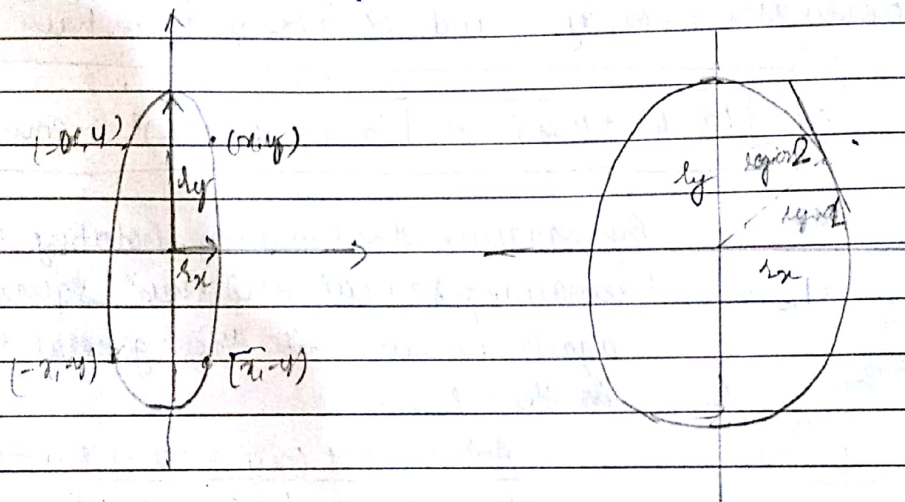 (-x,y) (x,y)
ry
rx
(-x,-y) (x,-y)
region 2
ry
region 1
rx